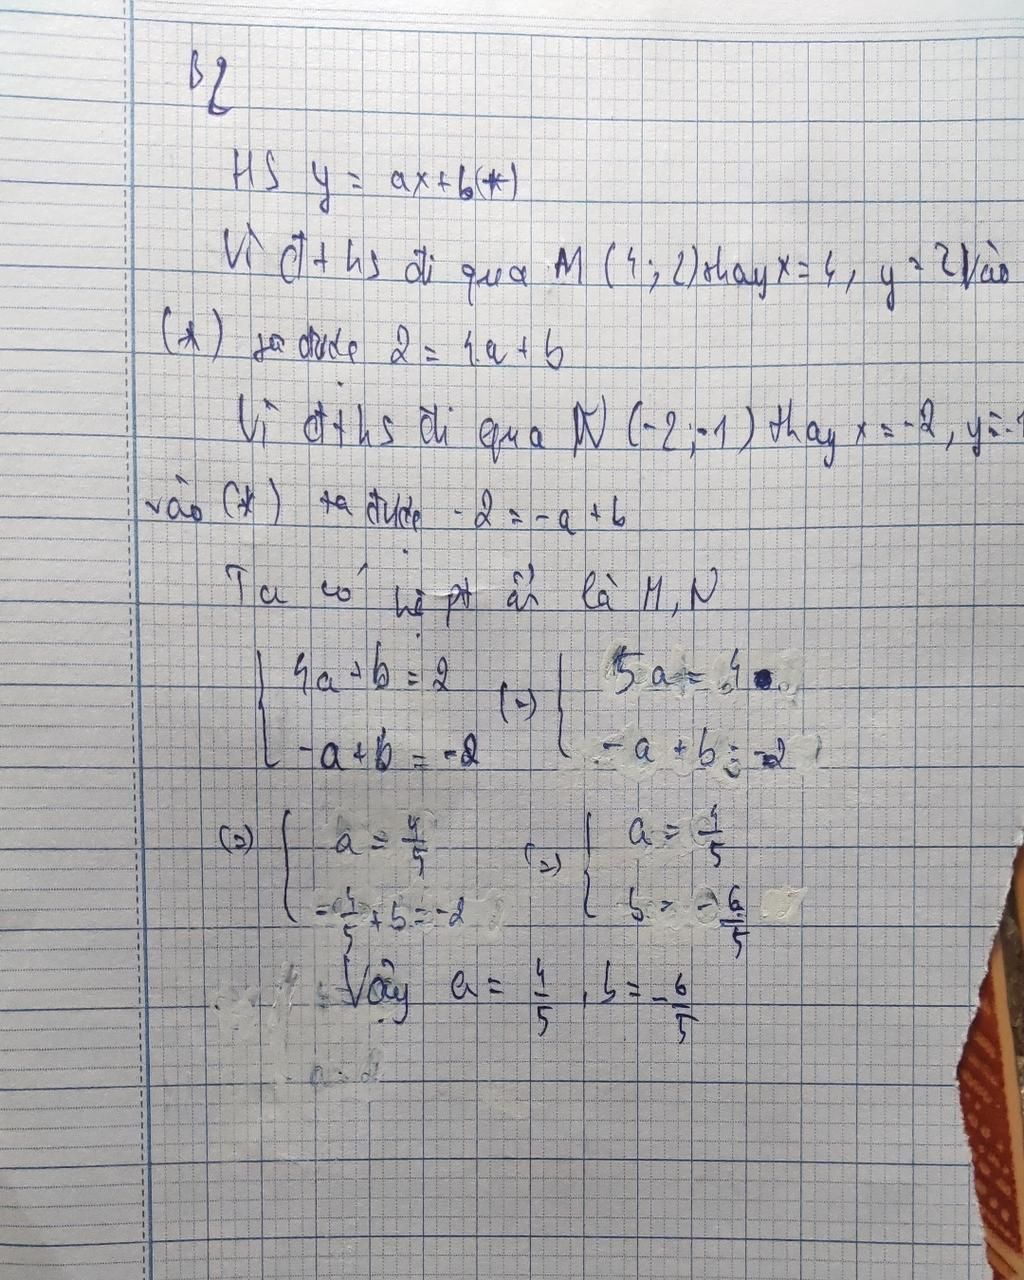 B2
HS y = ax+b(*)
Vì đths đi qua M (4; 2) thay x = 4, y = 2 vào
(*) ta được 2 = 4a + b
Vì đths đi qua N (-2;-1) thay x = -2, y = -1
vào (*) ta được -2 = -a + b
Ta có hệ pt ẩn là M, N
{ 4a + b = 2 (=) { 5a = 4
-a + b = -2 -a + b = -2
(=) { a = 4/5 (=) { a = 4/5
-4/5 + b = -2 b = -6/5
Vậy a = 4/5, b = -6/5